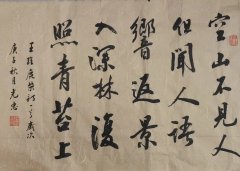 空山不見人
但聞人語
響返景
入深林復
照青苔上
王維鹿柴詩一首歲次
庚子秋月光